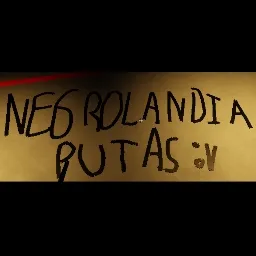 NEGROLANDIA
PUTAS :v